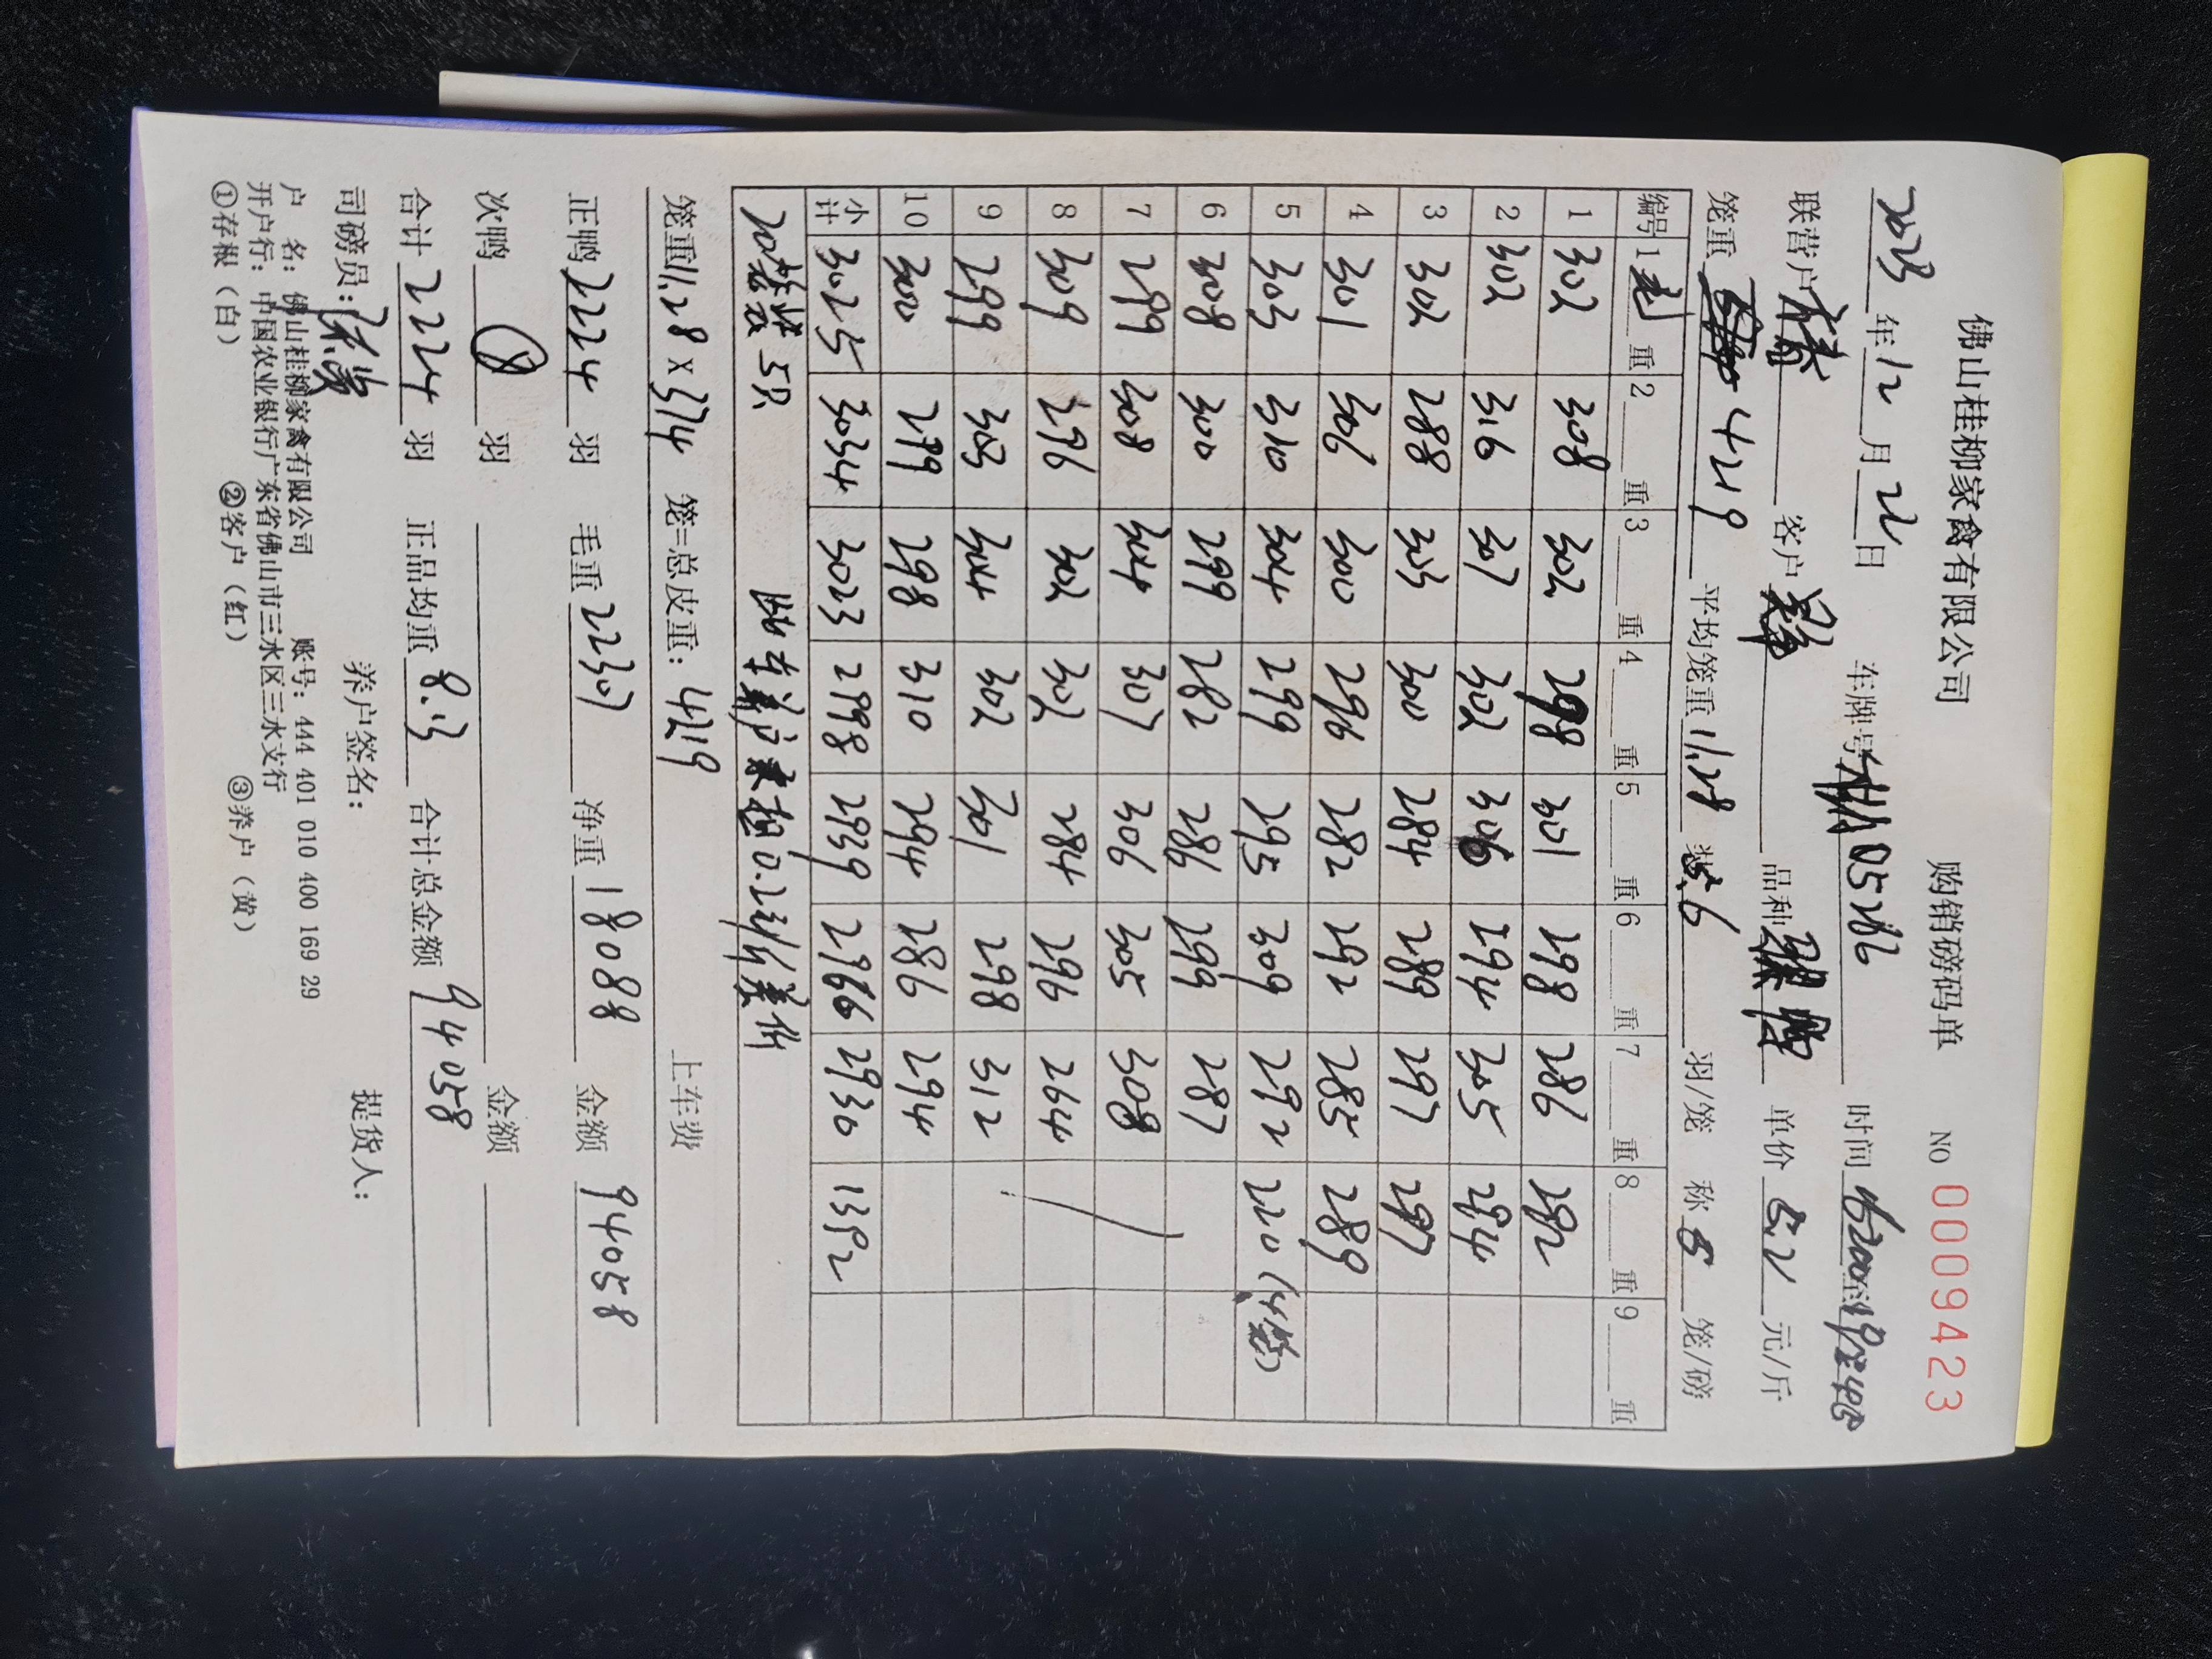 佛山桂柳家禽有限公司 购销磅码单 NO 0009423
2023年12月22日 车牌号 05286 时间
联营户 客户 品种 单价5.2元/斤
笼重4219 平均笼重11.28 装6羽/笼 称5笼/磅
编号 1 重 2 重 3 重 4 重 5 重 6 重 7 重 8 重 9 重
1 302 308 302 298 301 298 286 292
2 302 316 307 302 306 294 305 294
3 302 288 303 300 284 289 297 297
4 301 306 300 296 282 292 285 289
5 303 310 304 299 295 309 292 220(4笼)
6 308 300 299 282 286 299 287
7 299 308 344 307 306 305 308
8 309 296 302 302 284 296 264
9 299 303 344 302 301 298 312
10 300 299 298 310 294 286 294
小计 3025 3034 3023 2998 2939 2966 2930 1392
20笼装5只 此车养户 0.2元/斤差价
笼重11.28×374 笼=总皮重:4219 上车费
正鸭2224羽 毛重22307 净重18088 金额94058
次鸭 0 羽 金额
合计2224羽 正品均重8.13 合计总金额94058
司磅员: 养户签名: 提货人:
户 名:佛山桂柳家禽有限公司 账号:444 401 010 400 169 29
开户行:中国农业银行广东省佛山市三水区三水支行
①存根(白) ②客户(红) ③养户(黄)